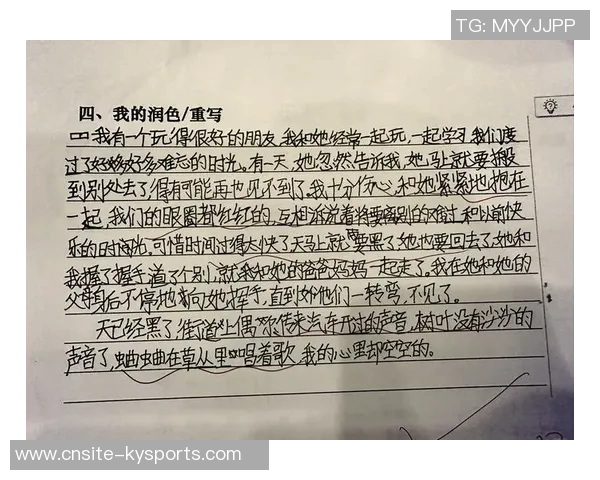 TG: MYYJJPP
四、我的润色/重写
我有一个玩得很好的朋友，我和她经常一起玩，一起学习，我们度
过了好多好多难忘的时光。有一天，她忽然告诉我，她马上就要搬
到别处去了，有可能再也见不到了。我十分伤心，和她紧紧地抱在
一起，我们的眼圈都红红的，互相诉说着将要离别的难过和以前快
乐的时光，可惜时间过得太快了，天马上就要黑了，她也要回去了，她和
我握了握手，道了个别，就和她的爸爸妈妈一起走了。我在她和她的
父母身后不停地向她挥手，直到他们一转弯，不见了。
天已经黑了，街道上偶尔传来汽车开过的声音，树叶没有沙沙的
声音了，蛐蛐在草丛里唱着歌，我的心里却空空的。
www.cnsite-kysports.com